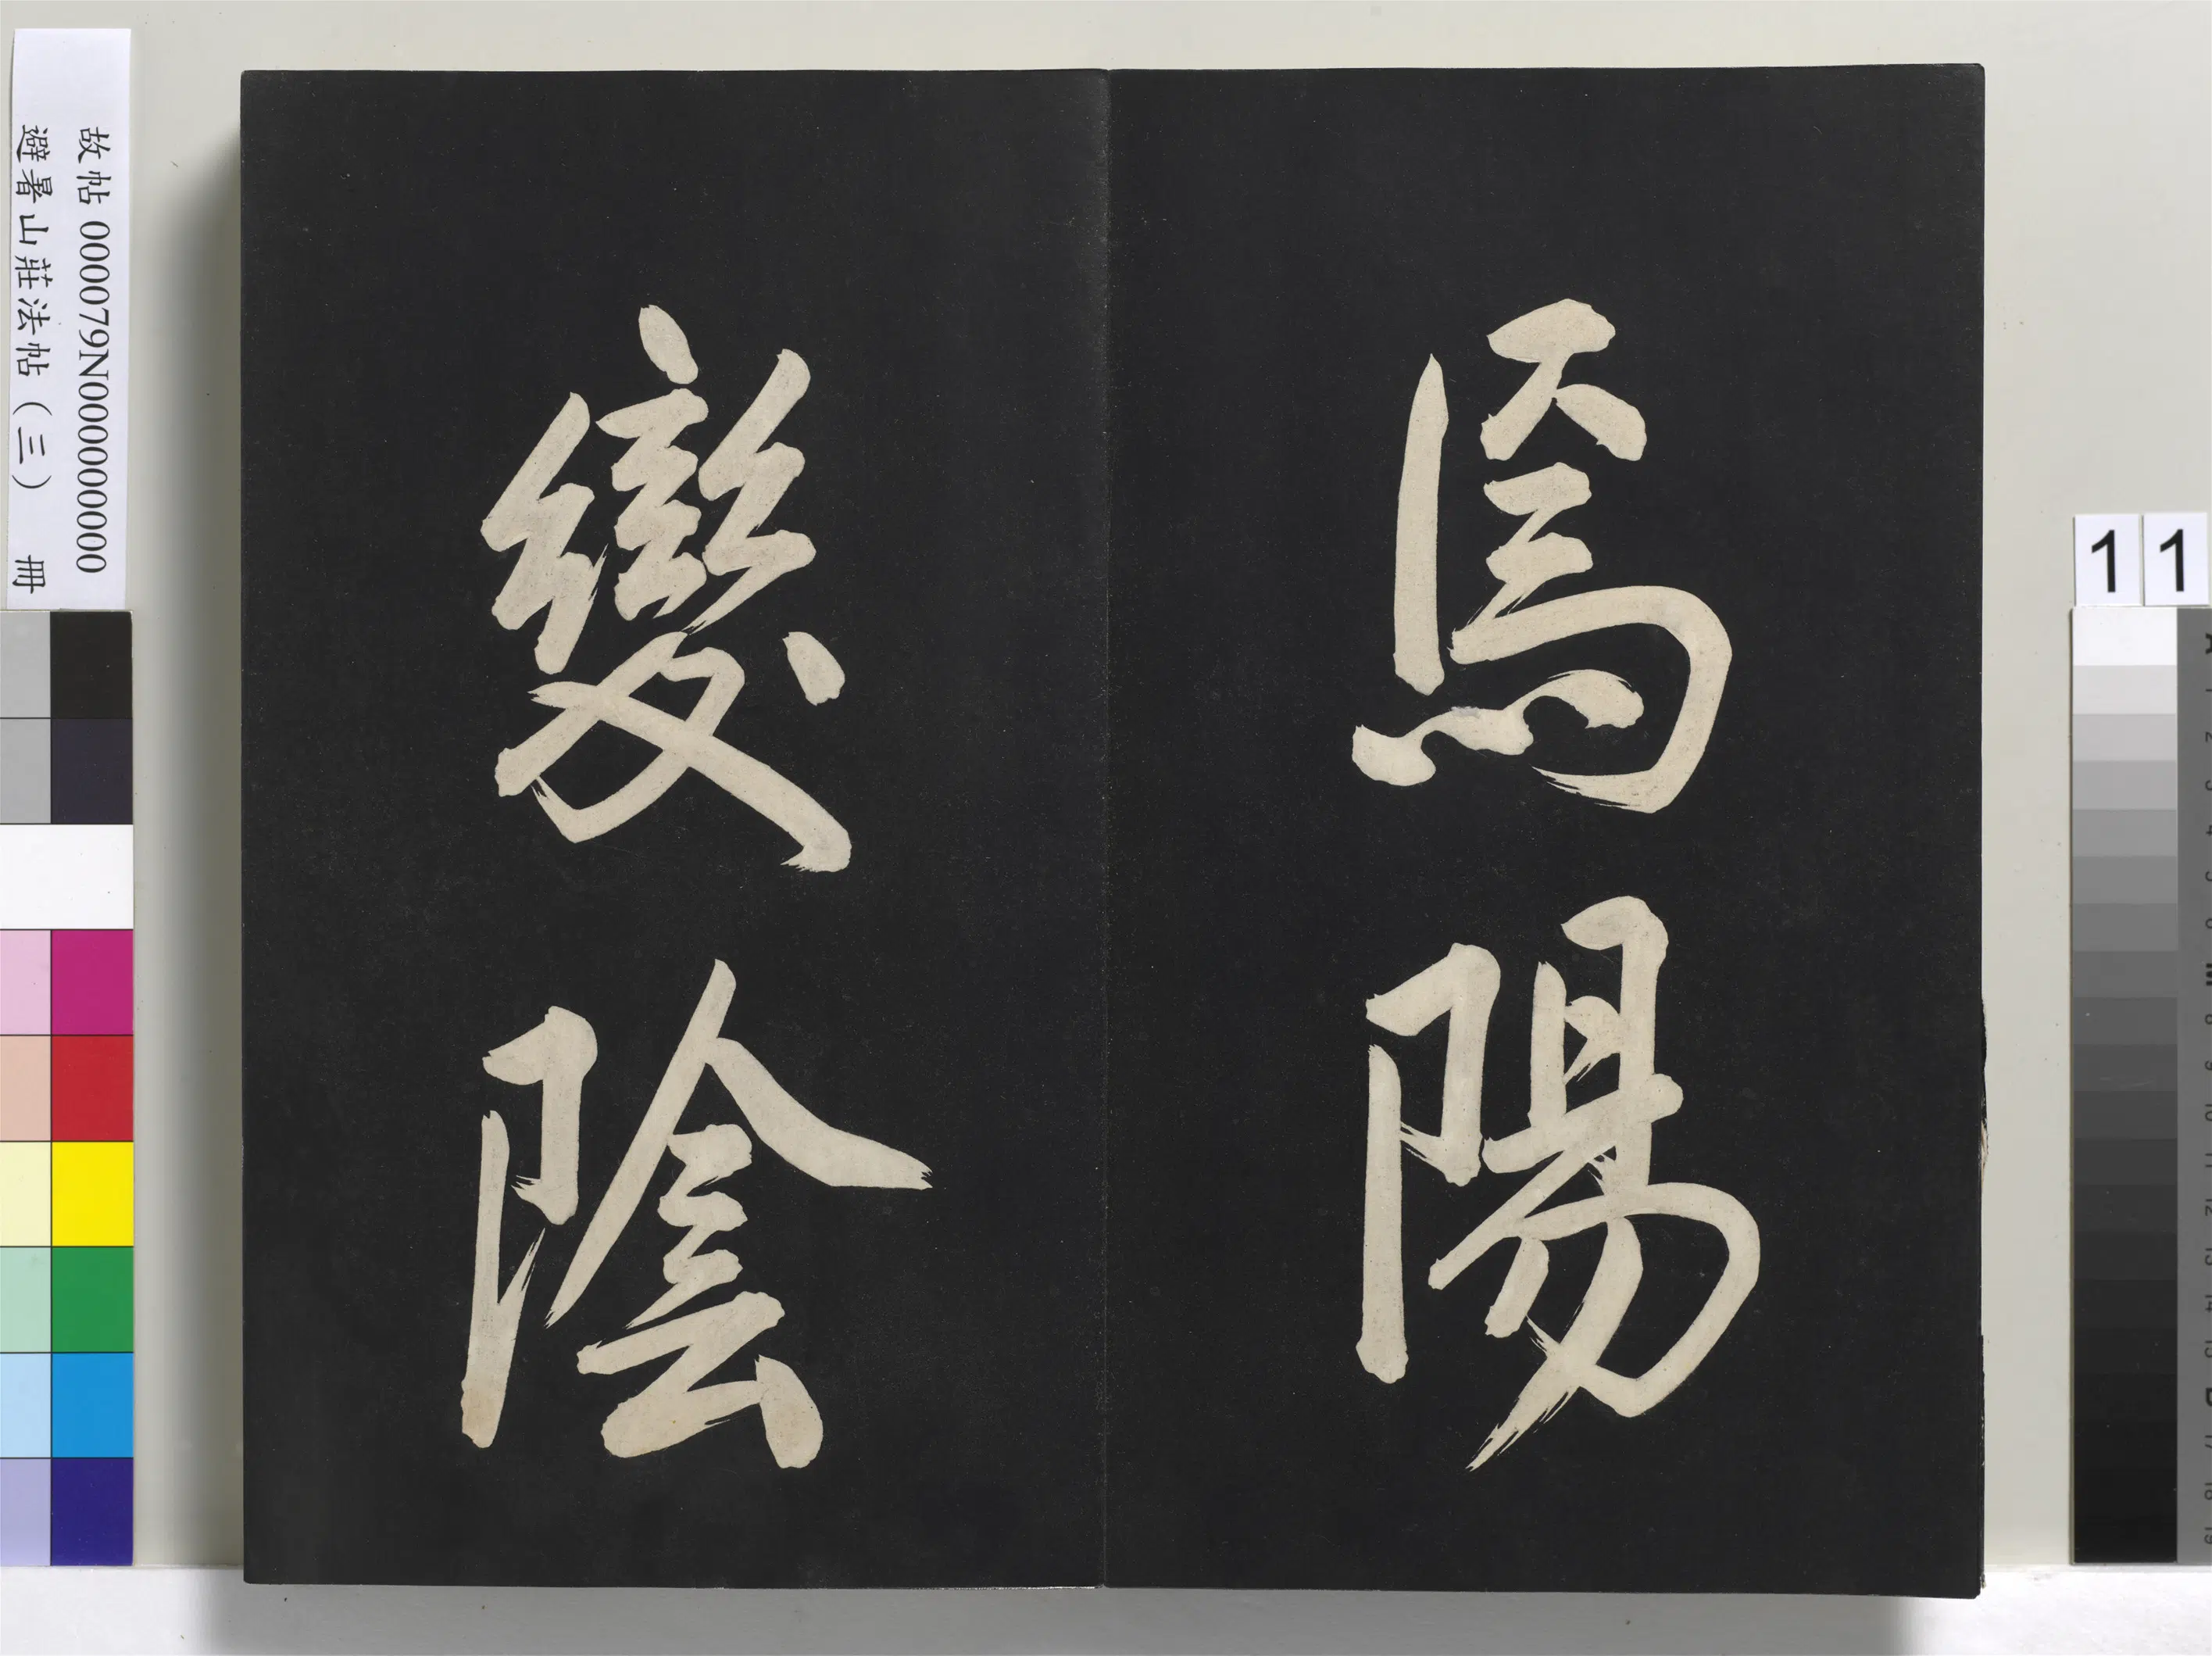 焉陽
變陰
故帖 000079N000000000
避暑山莊法帖（三） 冊
11